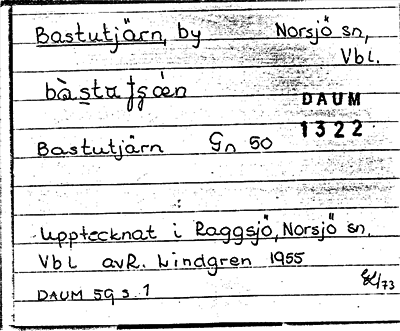 Bastutjärn, by Norsjö sn,
Vbl.
DAUM
1322
Bastutjärn Gn 50
Upptecknat i Raggsjö, Norsjö sn.
Vbl av R. Lindgren 1955
DAUM 59 s. 1
/73